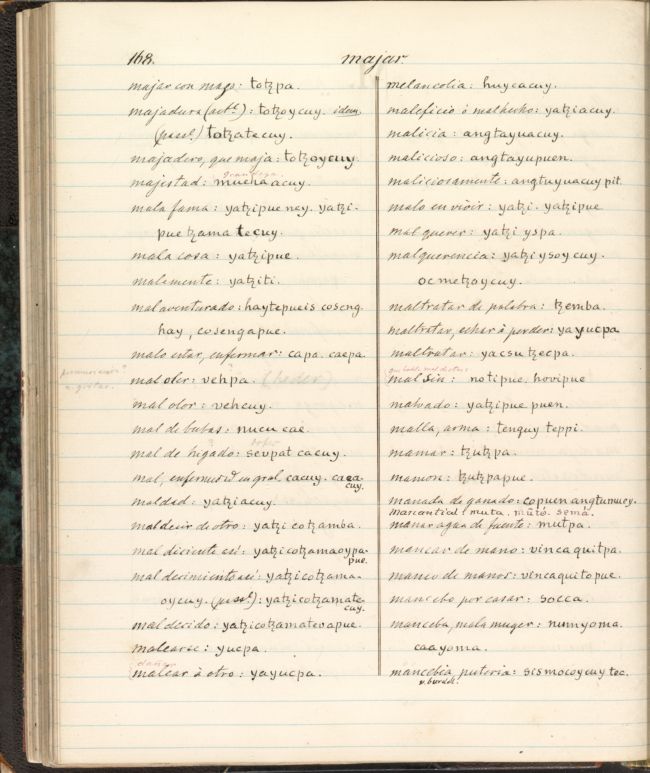 168.
majar.
majar con mazo: totzpa.
majadura (act.e): totzoycuy. idem,
(pass.e) totzatecuy.
majadero, que maja: totzoycuy.
grandeza
majestad: muchaacuy.
mala fama: yatzipue ney. yatzi-
pue tzama tecuy.
mala cosa: yatzipue.
malamente: yatziti.
malaventurado: haytepueis coseng.
hay, cosengapue.
malo estar, enfermar: capa. caepa.
mal oler: vehpa. (heder)
mal olor: vehcuy.
mal de bubas: nucu cae.
mal de higado: seupat cacuy.
mal, enfermed en gral. cacuy. caea
cuy.
maldad: yatziacuy.
maldecir de otro: yatzi cotzamba.
mal diciente así: yatzicotzamaoypa-
pue.
mal decimiento así: yatzicotzama-
oycuy. (pass.e): yatzicotzamate-
cuy.
maldecido: yatzicotzamatevapue.
malearse: yucpa.
dañar
malear à otro: yayucpa.
melancolia: huycacuy.
maleficio ò malhecho: yatziacuy.
malicia: angtayuacuy.
malicioso: angtayupuen.
maliciosamente: angtuyuacuy pit.
malo en vivir: yatzi. yatzipue
mal querer: yatzi yspa.
malquerencia: yatzi ysoycuy.
ocmetzoycuy.
maltratar de palabra: tzemba.
maltratar, echar à perder: yayucpa
maltratar: yacsutzecpa.
que habla mal de otros
malsin: notipue. hovipue
malvado: yatzipue puen.
malla, arma: tenguy teppi.
mamar: tzutzpa.
mamon: tzutzpapue.
manada de ganado: copuen angtumucy.
Marcantial: muta. mūtō. semá.
manar agua de fuente: mutpa.
mancar de mano: vincaquitpa.
manco de manos: vincaquitopue.
mancebo por casar: socca.
manceba, mala muger: numyoma.
caayoma.
mancebia, puteria: sismocoycuy tec.
v. burdel.